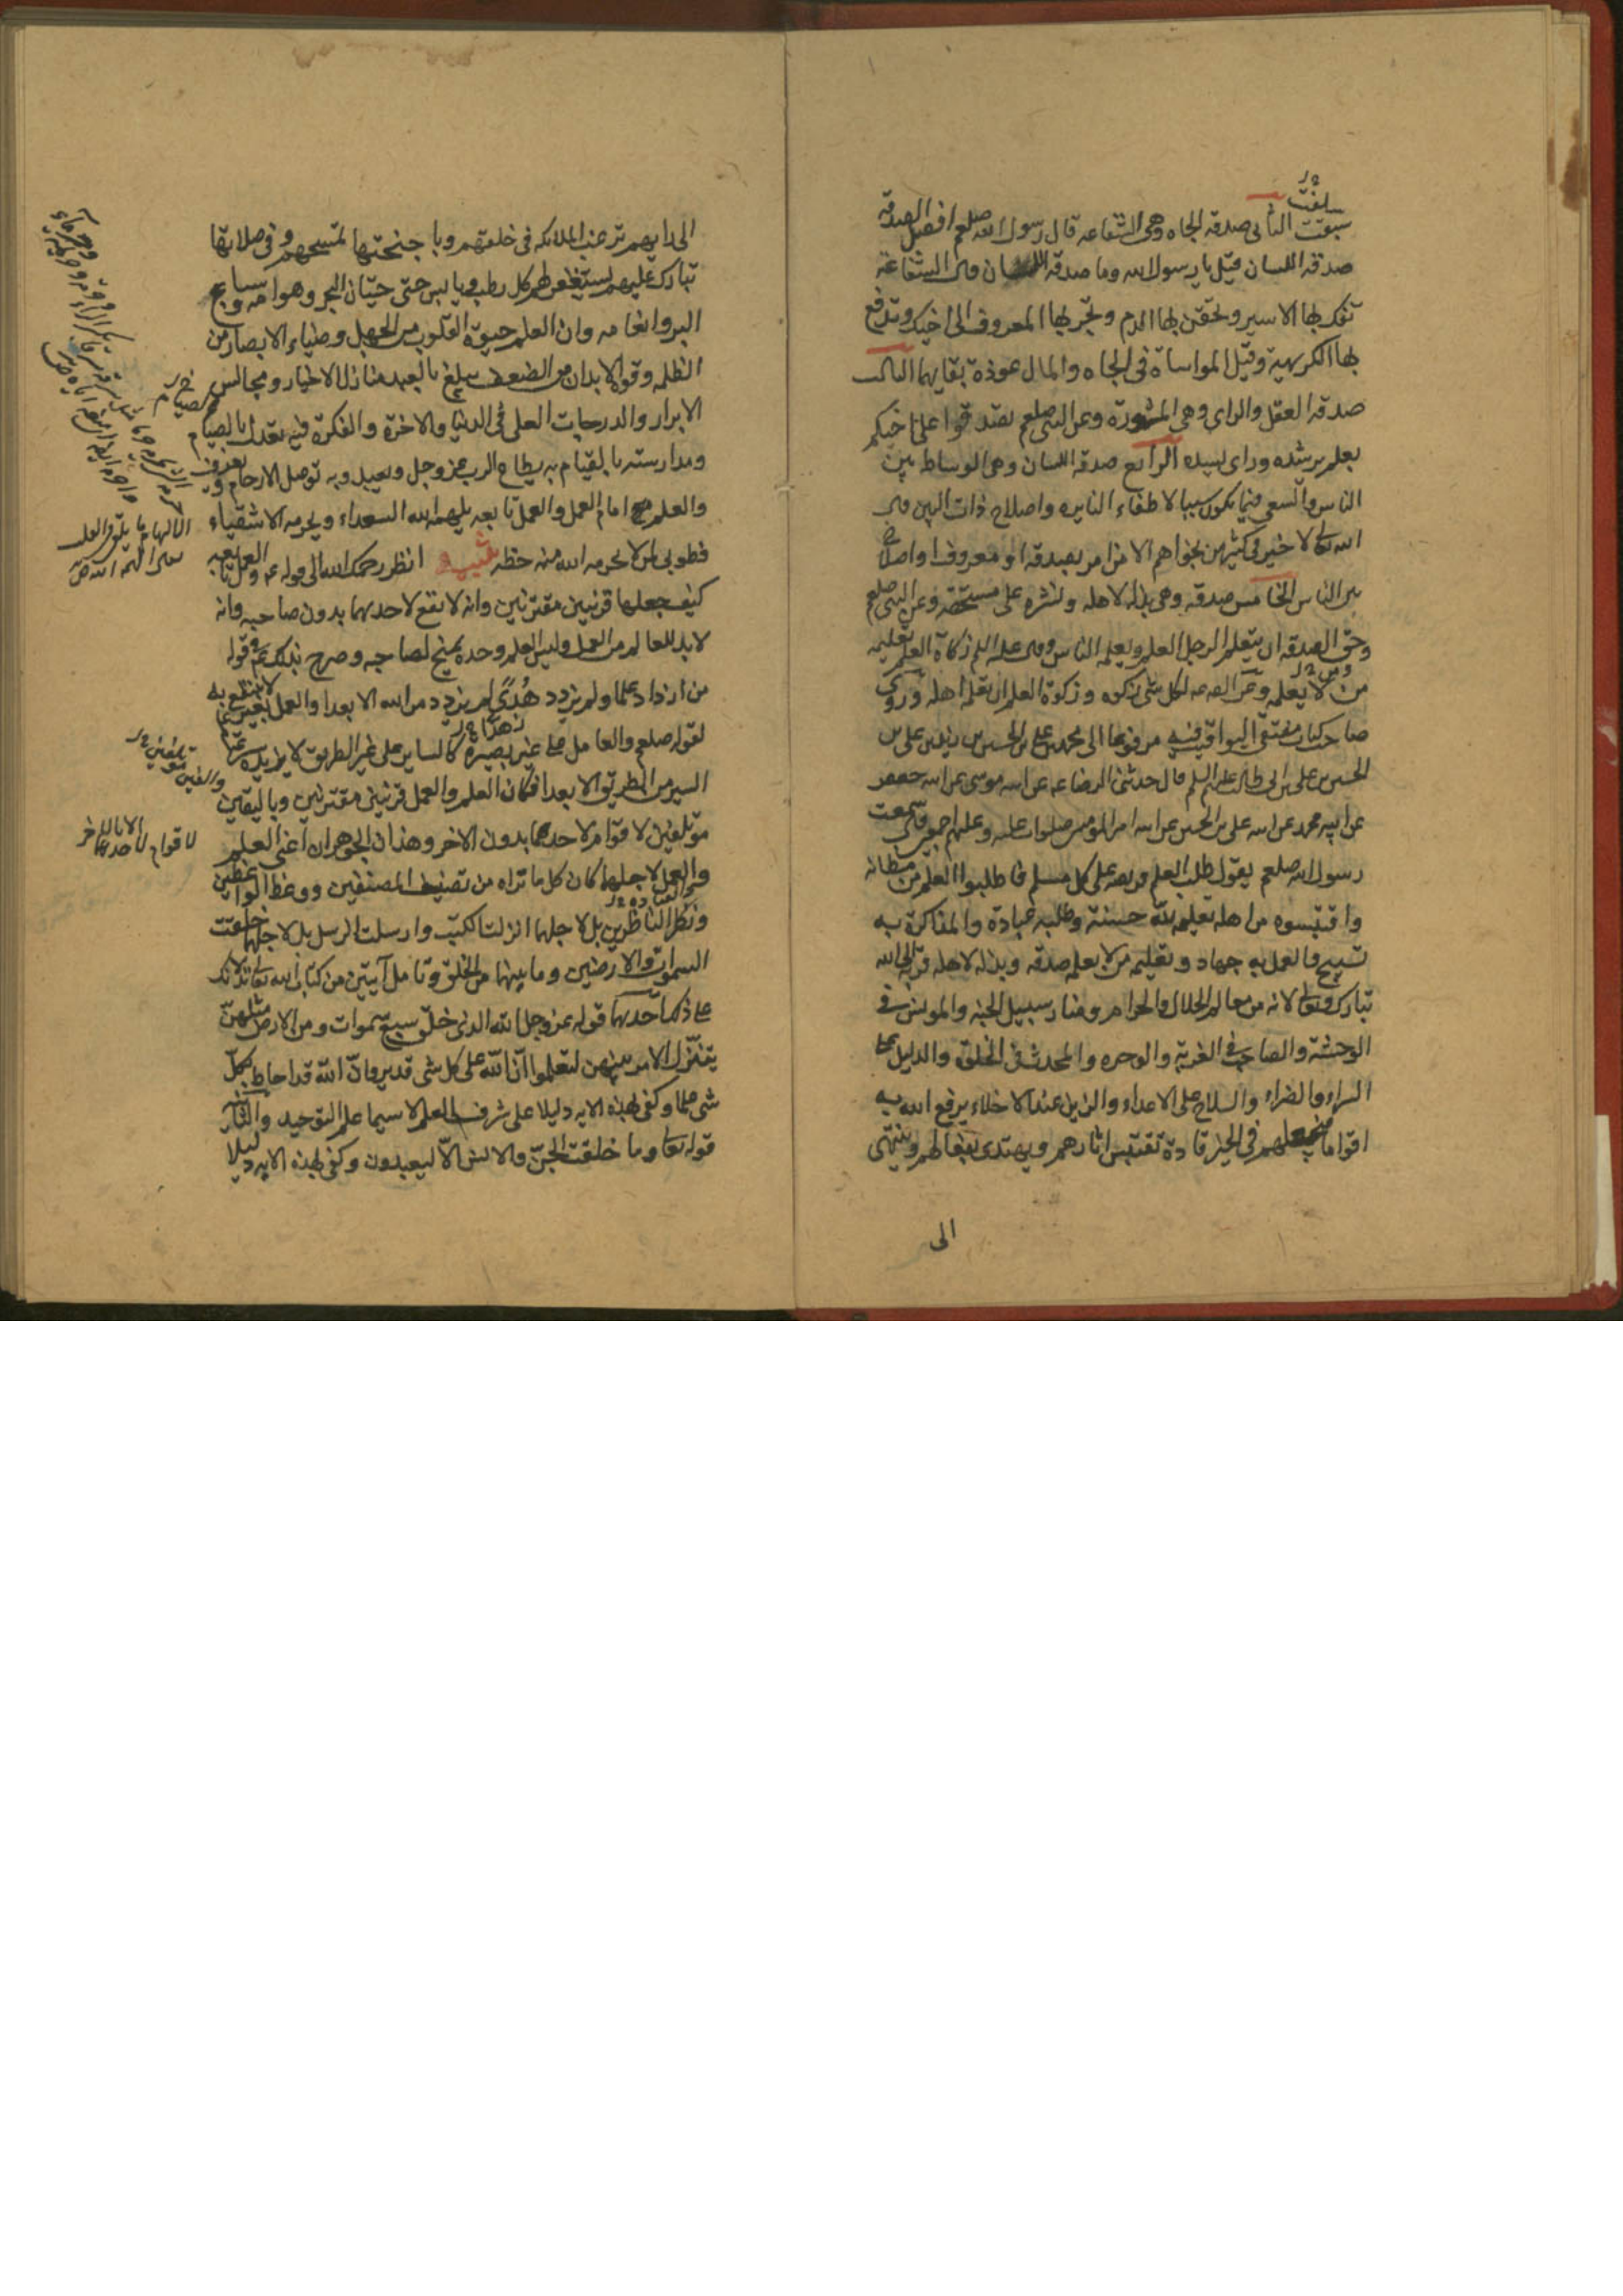 سلفت
سبقت الثانى صدقه الجاه وهى الشفاعه قال رسول الله صلعم افضل الصدقه
صدقه اللسان قيل يا رسول الله وما صدقه اللسان قال الشفاعة
تفك بها الاسير وتحقن بها الدم وتجر بها المعروف الى اخيك وتدفع
بها الكريهة وقيل المواساة فى الجاه والمال عوذة بقايهما الثالث
صدقه العقل والراى وهى المشورة وعن النبى صلعم تصدقوا على اخيكم
بعلم يرشده وراى يسدده الرابع صدقه اللسان وهى الوساطه بين
الناس والسعى فيما يكون سببا لاطفاء النايره واصلاح ذات البين قال
الله تعالى لا خير فى كثير من نجواهم الا من امر بصدقه او معروف او اصلاح
بين الناس الخامس صدقه وهى بذله لاهله ونشره على مستحقه وعن النبى صلعم
ومن الصدقه ان يتعلم الرجل العلم ويعلمه الناس وقال عليه السلم زكاة العلم تعليمه
من لا يعلمه وعن الصـ لكل شى زكوه وزكوة العلم ان تعلمه اهله وروى
صاحب كتاب منتقى اليواقيت فيه مرفوعا الى محمد بن على بن الحسين بن زيد بن على بن
الحسين بن على بن ابى طالب عليهم السلم قال حدثنى الرضا عن ابيه موسى عن ابيه جعفر
عن ابيه محمد عن ابيه على بن الحسين عن ابيه امير المومنين صلوات عليه وعليهم اجمعين قال سمعت
رسول الله صلعم يقول طلب العلم فريضه على كل مسلم فاطلبوا العلم من مظانه
واقتبسوه من اهله تعليمه لله حسنة وطلبه عبادة والمذاكرة به
تسبيح والعمل به جهاد وتعليمه من لا يعلمه صدقه وبذله لاهله قربة الى الله
تبارك وتعالى لانه من معالم الحلال والحرام ومنار سبيل الجنه والمونس فى
الوحشة والصاحب فى الغربة والوحده والمحدث فى الخلوة والدليل على
السراء والضراء والسلاح على الاعداء والزين عند الاخلاء يرفع الله به
اقواما فيجعلهم فى الخير قادة تقتبس اثارهم ويهتدى بفعالهم وينتهى
الى
الى رايهم ترغب الملائكه فى خلقهم وباجنحتها تمسحهم وفى صلاتها
تبارك عليهم يستغفر لهم كل رطب ويابس حتى حيتان البحر وهوامه وسباع
البر وانعامه وان العلم حيوة القلوب من الجهل وضياء الابصار من
الظلمه وقوة الابدان من الضعف يبلغ بالعبد منازل الاخيار ومجالس
الابرار والدرجات العلى فى الدنيا والاخرة والفكرة فيه تعدل بالصيام
ومدارسته بالقيام به يطاع الرب عز وجل ويعبد وبه توصل الارحام ويعرف
والعلم امام العمل والعمل تابعه يلهمه الله السعداء ويحرمه الاشقياء
فطوبى لمن لا يحرمه الله منه حظه تنبيه انظر رحمك الله الى قوله عم والعمل تابعه
كيف جعلها قرنيين مقترنين وانه لا نفع لاحدهما بدون صاحبه وانه
لا بد للعالم من العمل وليس العلم وحده بمنج لصاحبه وصرح بذلك عم قوله
من ازداد علما ولم يزدد هدى لم يزدد من الله الا بعدا والعمل بغير علم لا ينتفع به
لقوله صلعم والعامل على غير بصيرة كالساير على غير الطريق لا يزيده سرعة
السير من الطريق الا بعدا فكان العلم والعمل قرنيين مقترنين وباليقين
موتلفين لا قوام لاحدهما بدون الاخر وهذان الجوهران اعنى العلم
والعمل لاجلهما كان كل ما تراه من تصنيف المصنفين ووعظ الواعظين
ونظر الناظرين بل لاجلهما انزلت الكتب وارسلت الرسل بل لاجلهما خلقت
السموات والارضين وما بينهما من الخلق وتامل آيتين من كتاب الله تعالى تدلانك
على ذلك احدهما قوله عز وجل الله الذى خلق سبع سموات ومن الارض مثلهن
يتنزل الامر بينهن لتعلموا ان الله على كل شى قدير وان الله قد احاط بكل
شى علما وكفى بهذه الايه دليلا على شرف العلم لاسيما علم التوحيد والثانيه
قوله تعالى وما خلقت الجن والانس الا ليعبدون وكفى بهذه الايه دليلا
لا قوام لاحدهما الا بالاخر